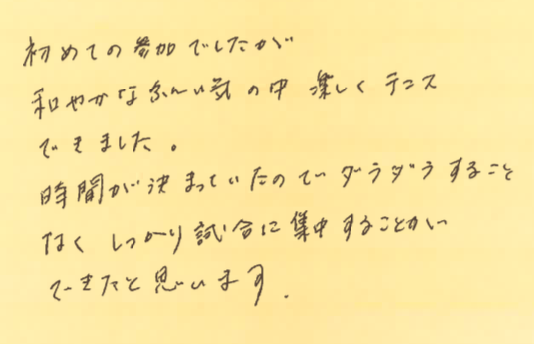 初めての参加でしたが
和やかなふんい気の中 楽しくテニス
できました。
時間が決まっていたのでダラダラすること
なく しっかり試合に集中することが
できたと思います.